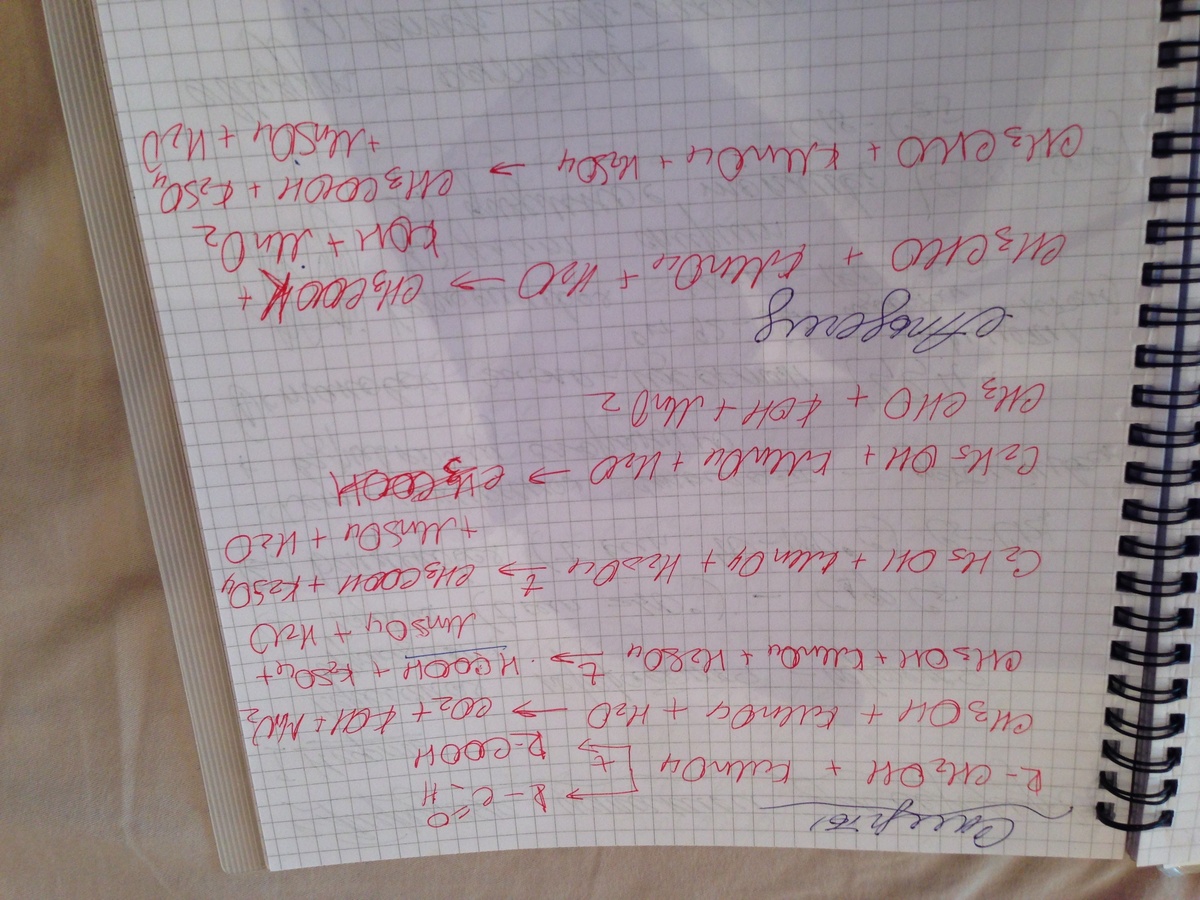 Спирты
R-C=O
H
R-CH2OH + KMnO4 → t → R-COOH
CH3OH + KMnO4 + H2O → CO2 + KOH + MnO2
CH3OH + KMnO4 + H2SO4 t→ HCOOH + K2SO4 +
MnSO4 + H2O
C2H5OH + KMnO4 + H2SO4 t→ CH3COOH + K2SO4
+ MnSO4 + H2O
C2H5OH + KMnO4 + H2O → CH3COOH
CH3CHO + KOH + MnO2
Альдегид
CH3CHO + KMnO4 + H2O → CH3COOK +
KOH + MnO2
CH3CHO + KMnO4 + H2SO4 → CH3COOH + K2SO4
+ MnSO4 + H2O